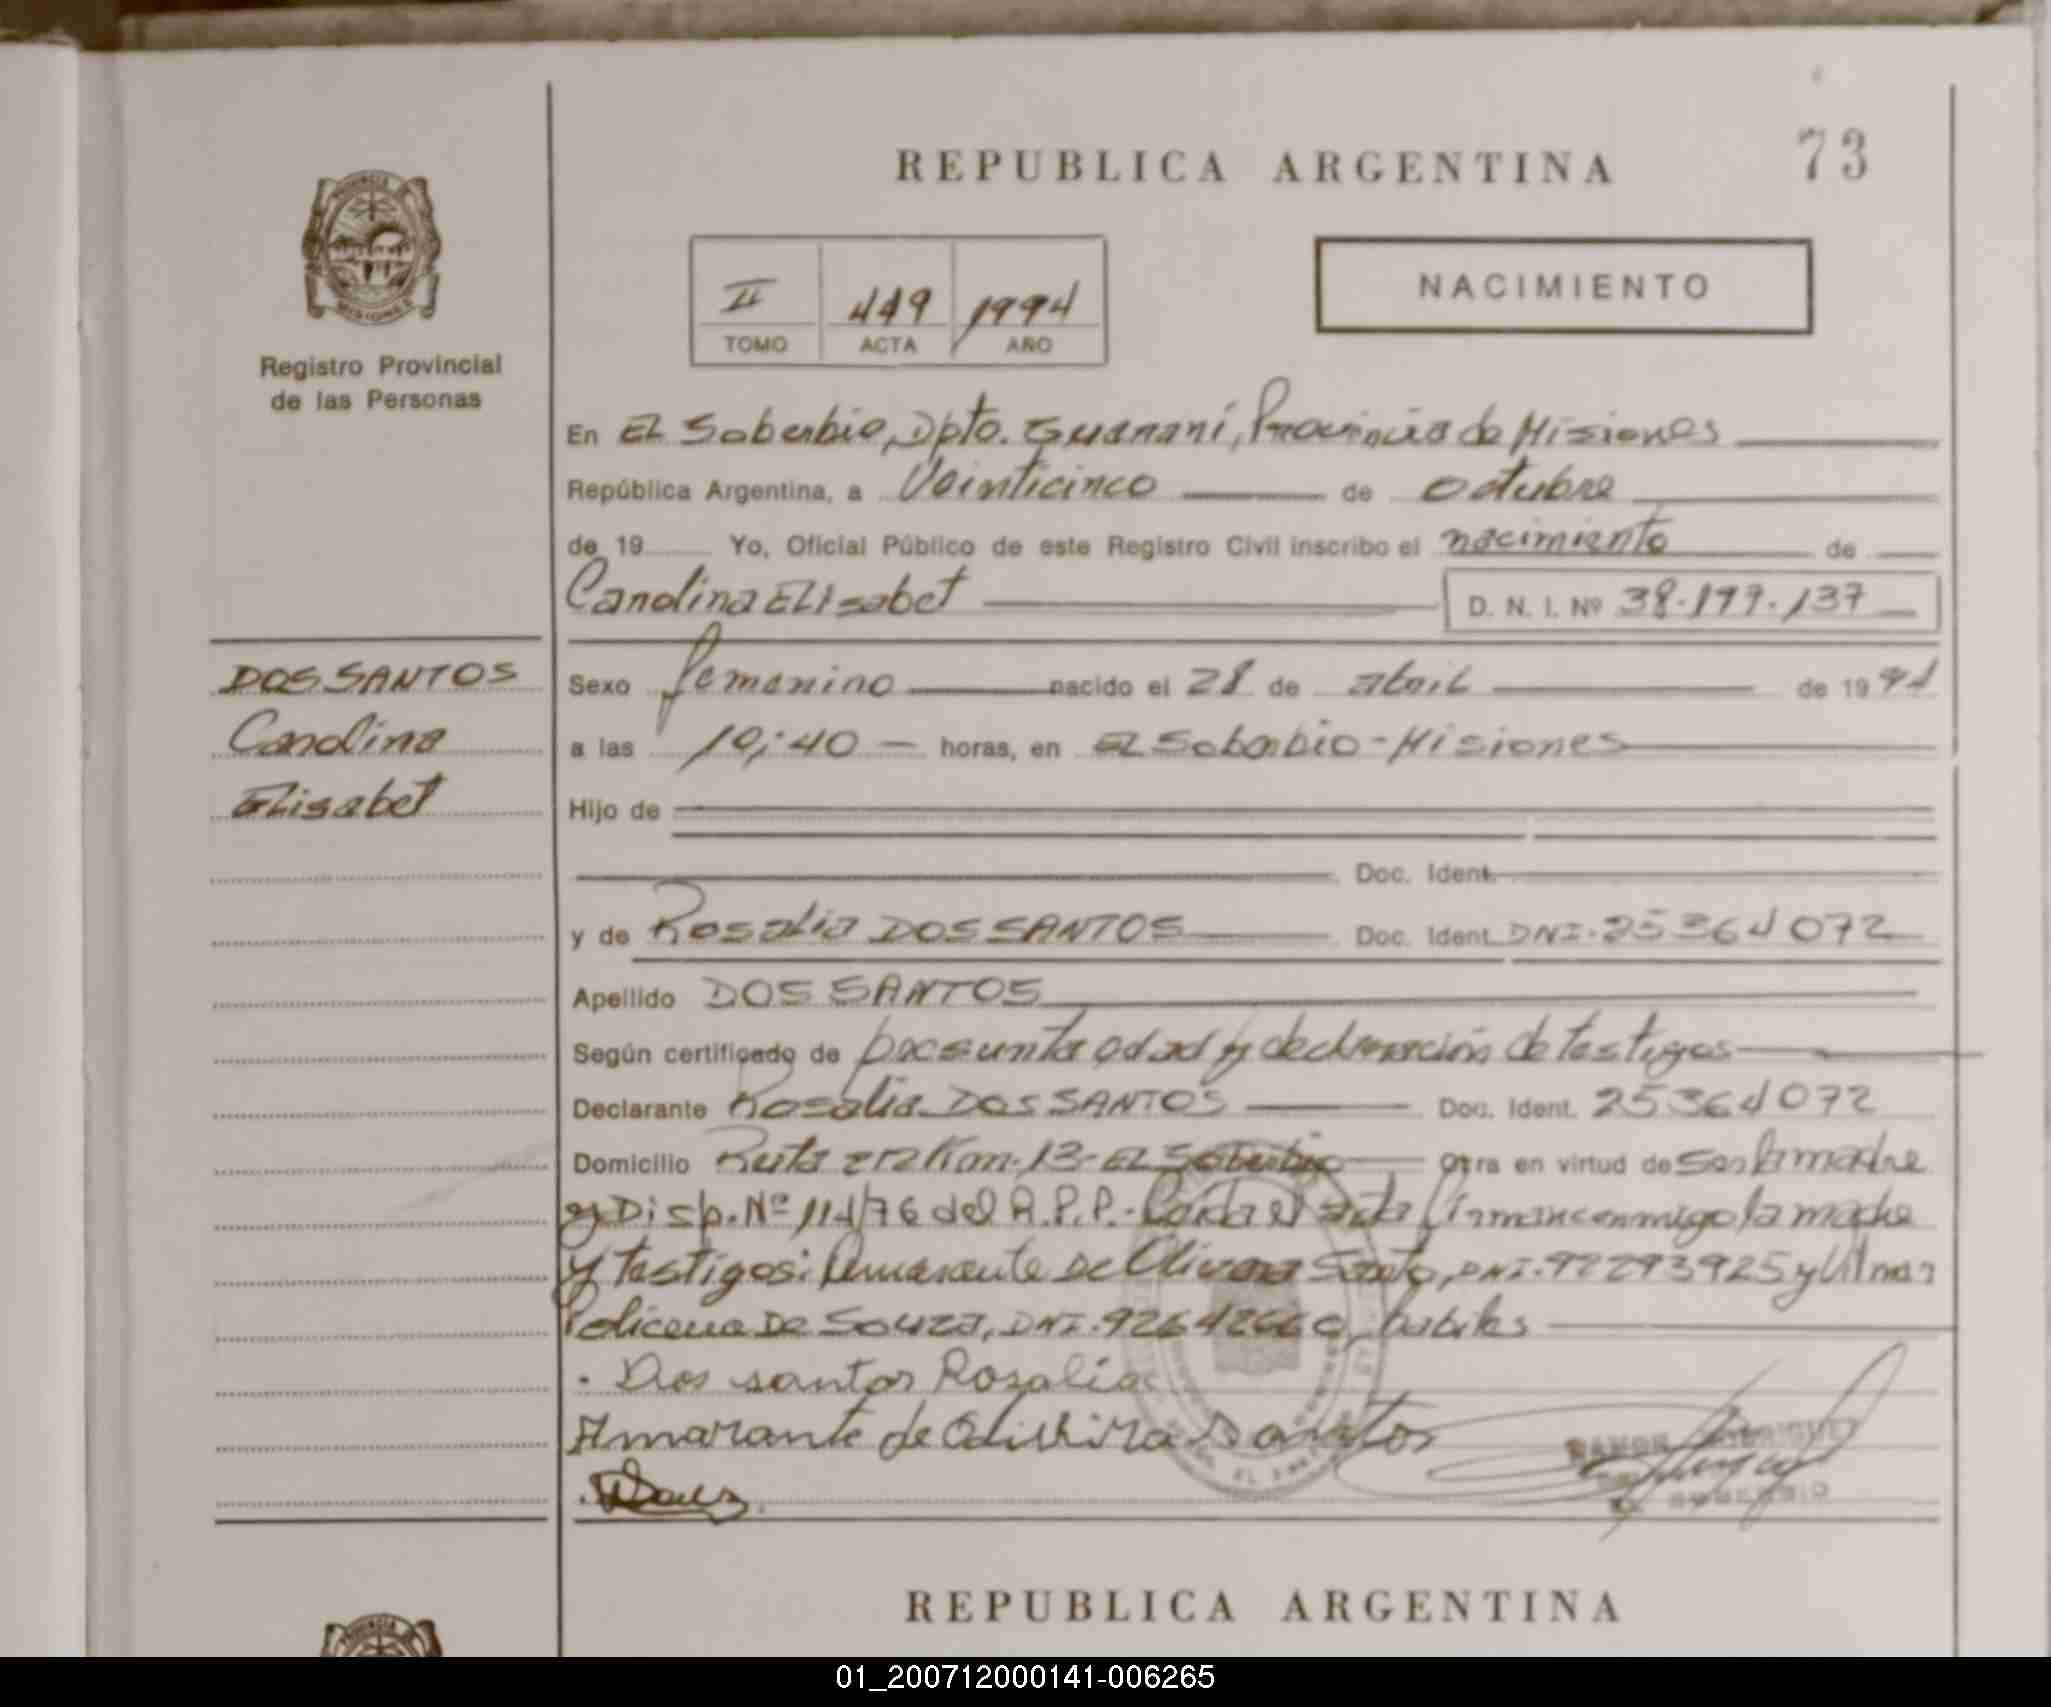 73
REPUBLICA ARGENTINA
II 449 1994
TOMO ACTA AÑO
NACIMIENTO
Registro Provincial
de las Personas
En EL Soberbio, Dpto. Guarani, Provincia de Misiones
República Argentina, a Veinticinco de octubre
de 19 Yo, Oficial Público de este Registro Civil inscribo el nacimiento de
Carolina Elisabet D. N. I. Nº 38.199.137
DOS SANTOS
Carolina
Elisabet
Sexo femenino nacido el 28 de abril de 19 94
a las 10:40 horas, en EL Soberbio - Misiones
Hijo de
Doc. Ident.
y de Rosalia DOS SANTOS Doc. Ident. DNI. 25364072
Apellido DOS SANTOS
Según certificado de presunta edad y declaración de testigos
Declarante Rosalia DOS SANTOS Doc. Ident. 25364072
Domicilio Ruta Km. 13 - EL Soberbio Obra en virtud de Ser la madre
y Disp. Nº 114/76 del R.P.P.- el acta firman conmigo la madre
y testigos: Amarante De Oliveira Santo, DNI. 92293925 y Vilmar
Policena De Souza, DNI. 92642660, habiles
. Dos santos Rosalia
Amarante de Oliveira Santos
RAMON RODRIGUEZ
EL SOBERBIO
REPUBLICA ARGENTINA
01_200712000141-006265